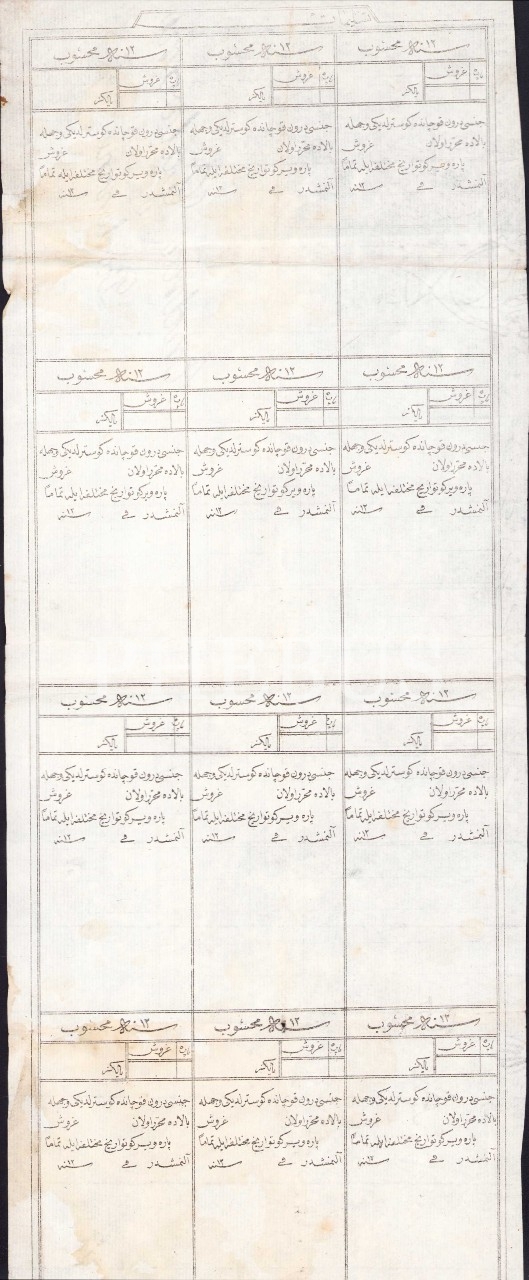 سنه ١٢ محسوب
سنه ١٢ محسوب
سنه ١٢ محسوب
پاره غروش
پاره غروش
پاره غروش
یالکز
یالکز
یالکز
جنسی درون قوچانده کوسترلدیکی وجهله
بالاده محرر اولان غروش
پاره ویرکو تواریخ مختلفه ایله تماما
آلنمشدر فی سنه ١٢
جنسی درون قوچانده کوسترلدیکی وجهله
بالاده محرر اولان غروش
پاره ویرکو تواریخ مختلفه ایله تماما
آلنمشدر فی سنه ١٢
جنسی درون قوچانده کوسترلدیکی وجهله
بالاده محرر اولان غروش
پاره ویرکو تواریخ مختلفه ایله تماما
آلنمشدر فی سنه ١٢
سنه ١٢ محسوب
سنه ١٢ محسوب
سنه ١٢ محسوب
پاره غروش
پاره غروش
پاره غروش
یالکز
یالکز
یالکز
جنسی درون قوچانده کوسترلدیکی وجهله
بالاده محرر اولان غروش
پاره ویرکو تواریخ مختلفه ایله تماما
آلنمشدر فی سنه ١٢
جنسی درون قوچانده کوسترلدیکی وجهله
بالاده محرر اولان غروش
پاره ویرکو تواریخ مختلفه ایله تماما
آلنمشدر فی سنه ١٢
جنسی درون قوچانده کوسترلدیکی وجهله
بالاده محرر اولان غروش
پاره ویرکو تواریخ مختلفه ایله تماما
آلنمشدر فی سنه ١٢
سنه ١٢ محسوب
سنه ١٢ محسوب
سنه ١٢ محسوب
پاره غروش
پاره غروش
پاره غروش
یالکز
یالکز
یالکز
جنسی درون قوچانده کوسترلدیکی وجهله
بالاده محرر اولان غروش
پاره ویرکو تواریخ مختلفه ایله تماما
آلنمشدر فی سنه ١٢
جنسی درون قوچانده کوسترلدیکی وجهله
بالاده محرر اولان غروش
پاره ویرکو تواریخ مختلفه ایله تماما
آلنمشدر فی سنه ١٢
جنسی درون قوچانده کوسترلدیکی وجهله
بالاده محرر اولان غروش
پاره ویرکو تواریخ مختلفه ایله تماما
آلنمشدر فی سنه ١٢
سنه ١٣ محسوب
سنه ١٣ محسوب
سنه ١٣ محسوب
پاره غروش
پاره غروش
پاره غروش
یالکز
یالکز
یالکز
جنسی درون قوچانده کوسترلدیکی وجهله
بالاده محرر اولان غروش
پاره ویرکو تواریخ مختلفه ایله تماما
آلنمشدر فی سنه ١٢
جنسی درون قوچانده کوسترلدیکی وجهله
بالاده محرر اولان غروش
پاره ویرکو تواریخ مختلفه ایله تماما
آلنمشدر فی سنه ١٣
جنسی درون قوچانده کوسترلدیکی وجهله
بالاده محرر اولان غروش
پاره ویرکو تواریخ مختلفه ایله تماما
آلنمشدر فی سنه ١٢